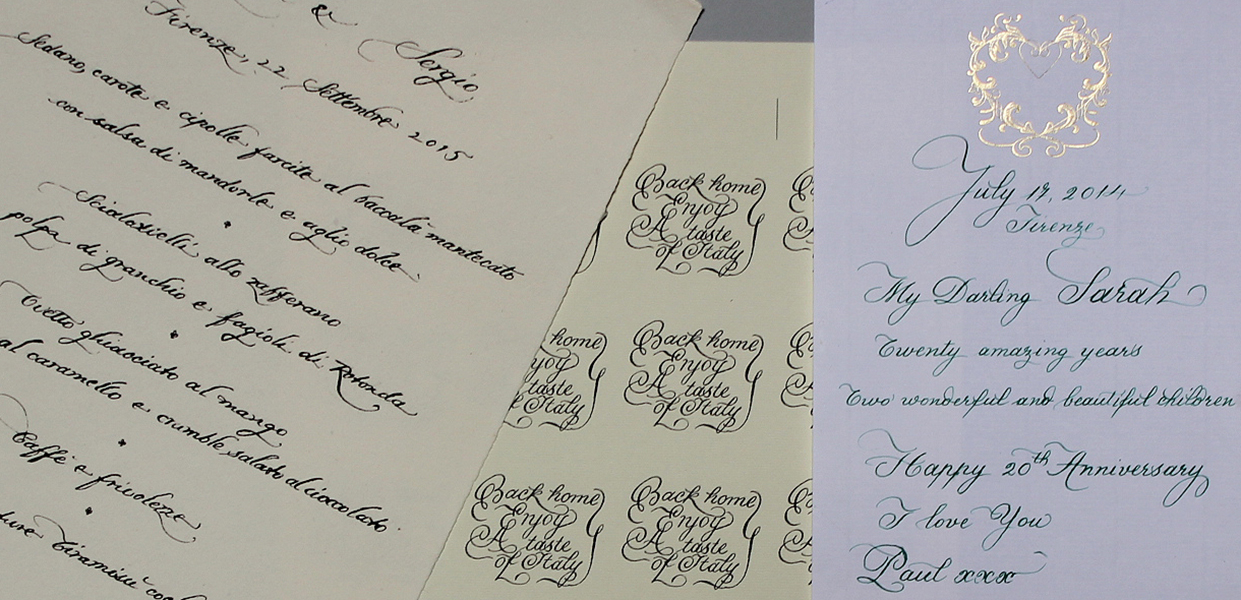 &
Sergio
Firenze, 22 Settembre 2015
Sedano, carote e cipolle farcite al baccalà mantecato
con salsa di mandorle e aglio dolce
Scialatielli allo zafferano
polpa di granchio e fagioli di Rotonda
Ovetto ghiacciato al mango,
al caramello e crumble salato al cioccolato
Caffè e frivolezze
Tiramisù
Back home
Enjoy
A taste
of Italy
home
taste
of Italy
Back home
Enjoy
A taste
of Italy
Back home
Enjoy
A taste
of Italy
Back home
Enjoy
A taste
of Italy
July 19, 2014
Firenze
My Darling Sarah
Twenty amazing years
Two wonderful and beautiful children
Happy 20th Anniversary
I love You
Paul xxx